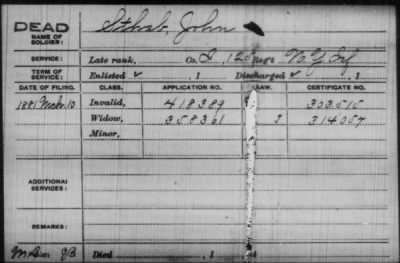 DEAD
NAME OF SOLDIER: Sthab, John
SERVICE: Late rank, Co. I, 12 Reg't N.Y. Inf
TERM OF SERVICE: Enlisted , 1 Discharged , 1
DATE OF FILING. CLASS. APPLICATION NO. LAW. CERTIFICATE NO.
1881 Mch. 10 Invalid, 418389 303515
Widow, 358361 J 314057
Minor,
ADDITIONAL SERVICES:
REMARKS:
Died , 1 at